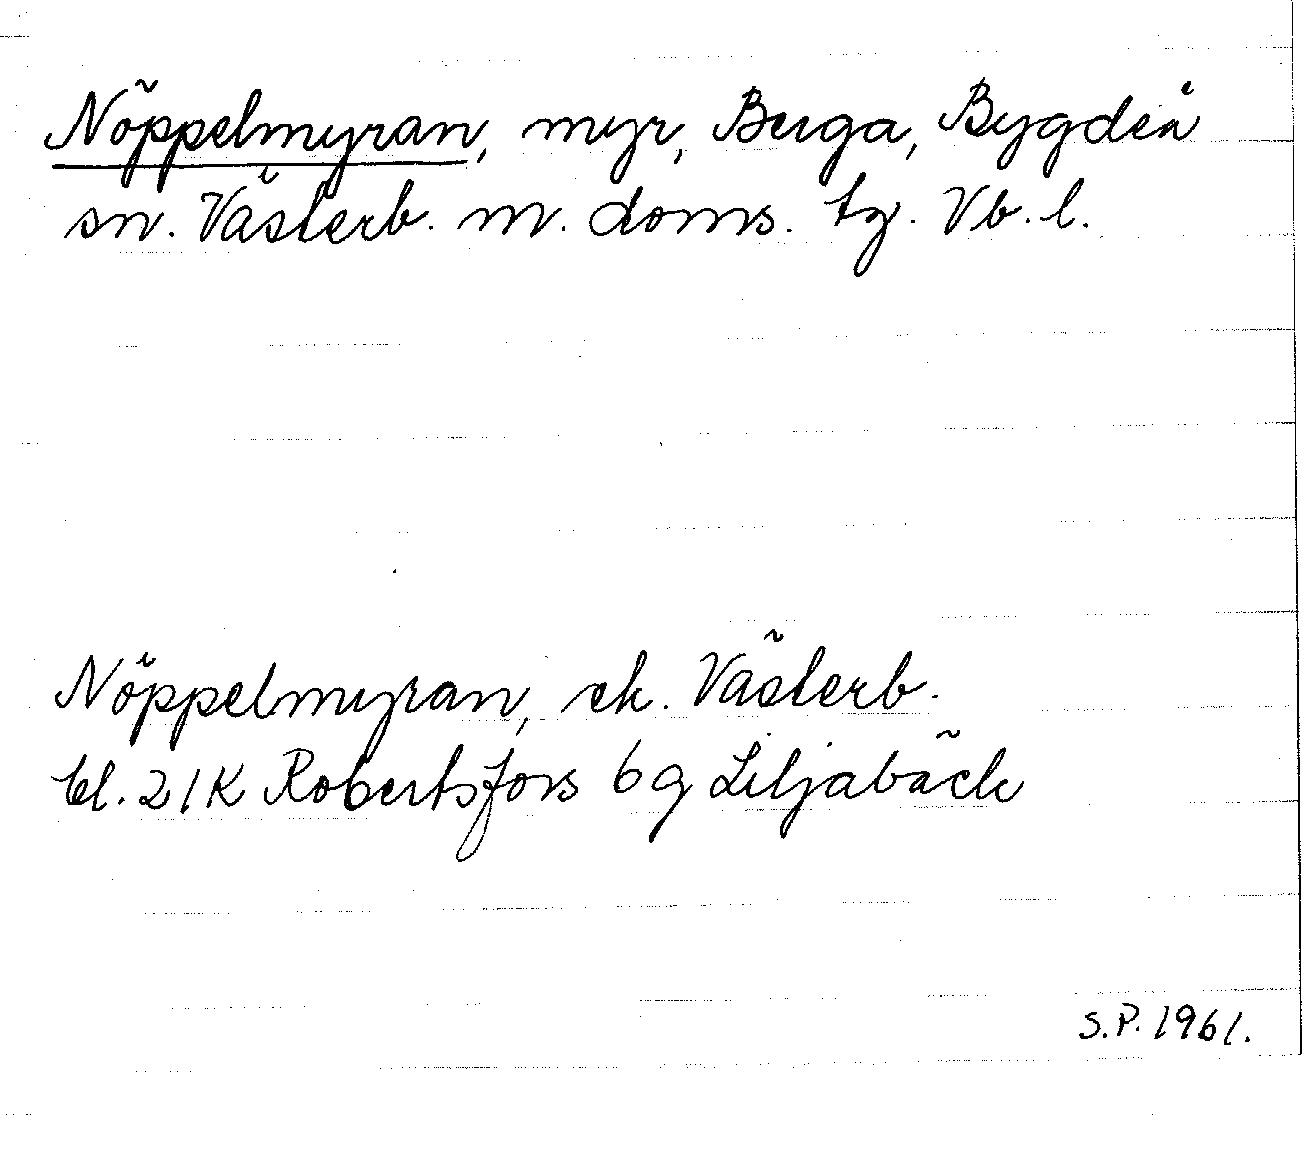 Nöppelmyran, myr, Berga, Bygdeå
sn. Västerb. m. doms. tg. Vb. l.
Nöppelmyran, ek. Västerb.
bl. 21K Robertsfors 6g Liljabäck
S.P. 1961.